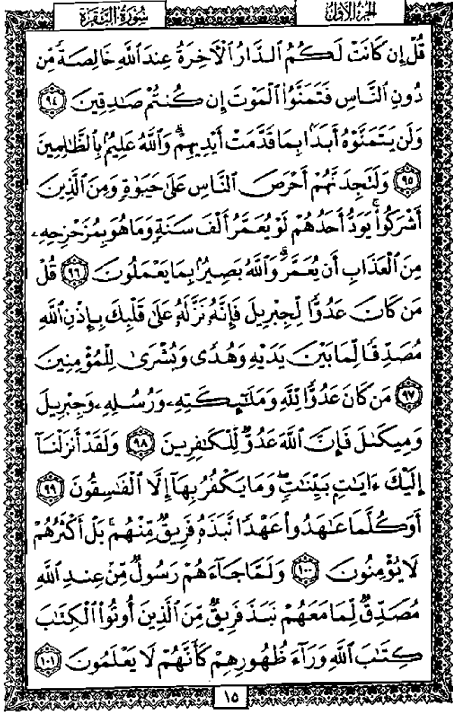 سُورَةُ البَقَرَةِ
الجُزءُ الأَوَّلُ
قُلْ إِن كَانَتْ لَكُمُ ٱلدَّارُ ٱلْءَاخِرَةُ عِندَ ٱللَّهِ خَالِصَةً مِّن
دُونِ ٱلنَّاسِ فَتَمَنَّوُا۟ ٱلْمَوْتَ إِن كُنتُمْ صَٰدِقِينَ ٩٤
وَلَن يَتَمَنَّوْهُ أَبَدًۢا بِمَا قَدَّمَتْ أَيْدِيهِمْ ۗ وَٱللَّهُ عَلِيمٌۢ بِٱلظَّٰلِمِينَ
٩٥ وَلَتَجِدَنَّهُمْ أَحْرَصَ ٱلنَّاسِ عَلَىٰ حَيَوٰةٍ وَمِنَ ٱلَّذِينَ
أَشْرَكُوا۟ ۚ يَوَدُّ أَحَدُهُمْ لَوْ يُعَمَّرُ أَلْفَ سَنَةٍ وَمَا هُوَ بِمُزَحْزِحِهِۦ
مِنَ ٱلْعَذَابِ أَن يُعَمَّرَ ۗ وَٱللَّهُ بَصِيرٌۢ بِمَا يَعْمَلُونَ ٩٦ قُلْ
مَن كَانَ عَدُوًّا لِّجِبْرِيلَ فَإِنَّهُۥ نَزَّلَهُۥ عَلَىٰ قَلْبِكَ بِإِذْنِ ٱللَّهِ
مُصَدِّقًا لِّمَا بَيْنَ يَدَيْهِ وَهُدًى وَبُشْرَىٰ لِلْمُؤْمِنِينَ
٩٧ مَن كَانَ عَدُوًّا لِّلَّهِ وَمَلَٰٓئِكَتِهِۦ وَرُسُلِهِۦ وَجِبْرِيلَ
وَمِيكَىٰلَ فَإِنَّ ٱللَّهَ عَدُوٌّ لِّلْكَٰفِرِينَ ٩٨ وَلَقَدْ أَنزَلْنَآ
إِلَيْكَ ءَايَٰتٍۭ بَيِّنَٰتٍ ۖ وَمَا يَكْفُرُ بِهَآ إِلَّا ٱلْفَٰسِقُونَ ٩٩
أَوَكُلَّمَا عَٰهَدُوا۟ عَهْدًا نَّبَذَهُۥ فَرِيقٌ مِّنْهُم ۚ بَلْ أَكْثَرُهُمْ
لَا يُؤْمِنُونَ ١٠٠ وَلَمَّا جَآءَهُمْ رَسُولٌ مِّنْ عِندِ ٱللَّهِ
مُصَدِّقٌ لِّمَا مَعَهُمْ نَبَذَ فَرِيقٌ مِّنَ ٱلَّذِينَ أُوتُوا۟ ٱلْكِتَٰبَ
كِتَٰبَ ٱللَّهِ وَرَآءَ ظُهُورِهِمْ كَأَنَّهُمْ لَا يَعْلَمُونَ ١٠١
١٥